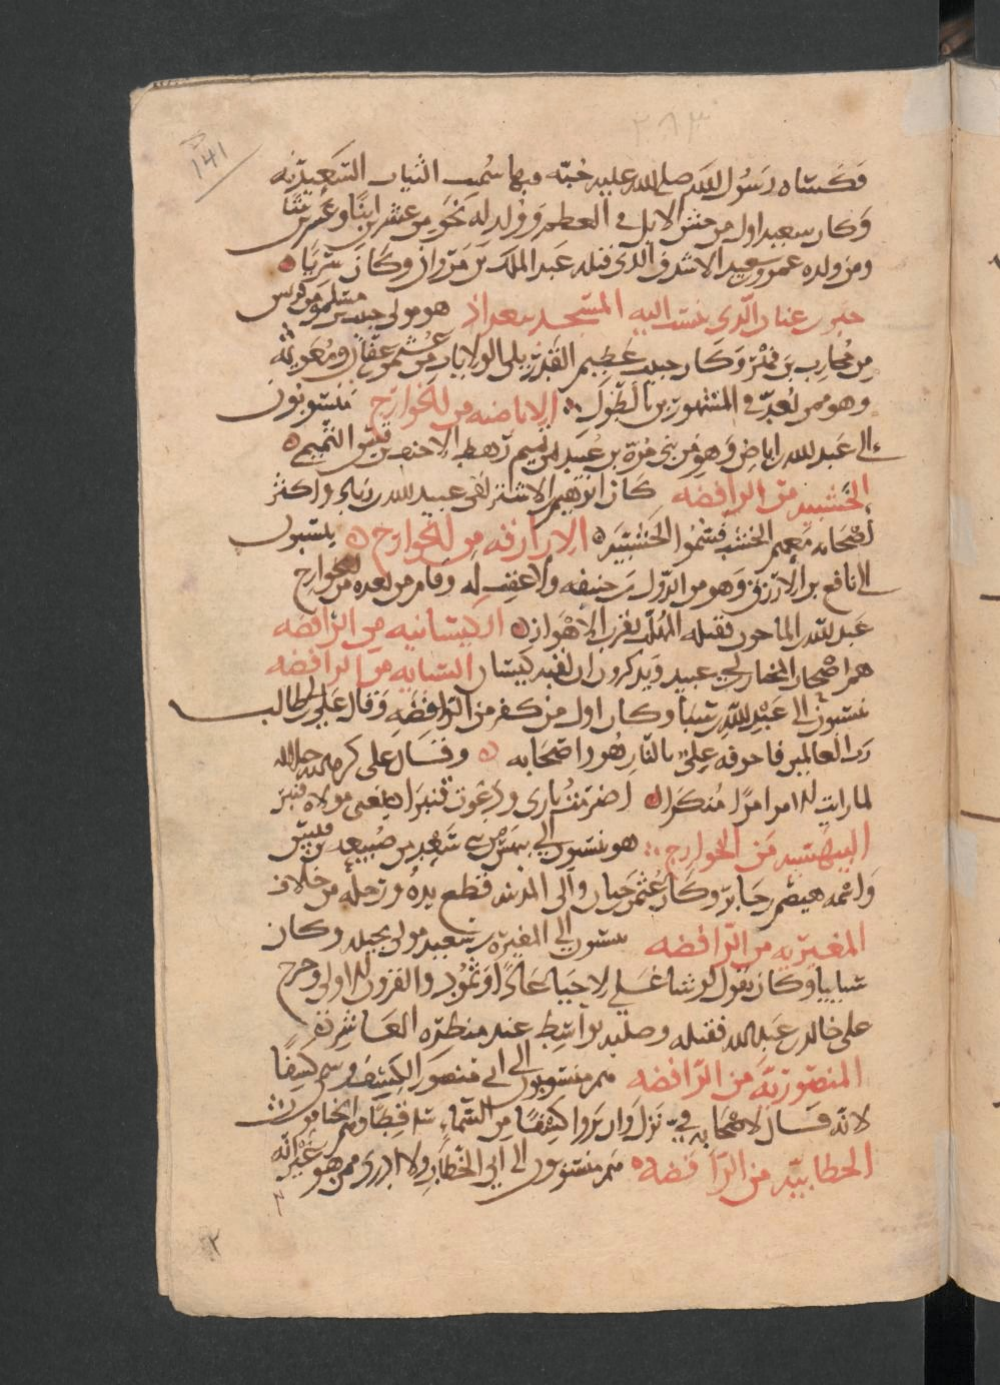 ٢٨٣
141
فكساه رسول الله صلى الله عليه جبّته فبها سُميت الثياب السَّعِيدِيّه
وكان سعيد اول من خش الابل في العظم وولد له نحو من عشرين ابنًا وعشرين بنتًا
ومن ولده عمرو بن سعيد الاشدق الذي قتله عبد الملك بن مروان وكان سريا
الّذى نسب اليه المسجد ببغداد هو مولى حبيب بن مسلمه من قريش
من مُحارِب بن فهْر وَكان حبيب عَظيم القَدر يلى الولايات من عثمن بن عفّان ومُعَويه
وهو ممن يُعدّ في المشهورين بالطّول الاباضيه من الخَوارج ينسبونون
الى عبد الله بن اباض وَهو من بنى مُرّة بن عُبَيد من تميم رَهط الاحنف بن قيس التميمي
الخشبيه من الرافضه كان ابرٰهيم الاشتر لقى عبيد الله بن زياد واكثر
اصْحَابه مَعهم الخشب فسُمُّوا الخَشَبيّه الازارقه من الخوارج ينسبون
الى نافع بن الازرق وَهو من الدّول بن حنيفه ولا عقب له وقام من بعده من الخوارج
عَبد الله بن الماحوز فقتله المُهلّب بقرب الاهْواز الكَيسَانيه من الرافضه
هم اصْحاب المختار بن ابى عبيد ويذكرون ان لقبه كَيسَان السّبايه من الرافضه
ينسبون الى عَبْدِ اللهِ بن سَبَا وكان اول من كفر من الرّافِضَهِ وَقال عَلي بن ابى طالب
رب العالمين فاحرقه عليّ بالنّار هُو واصْحَابه وقال على كرم الله وجهه
لما رايت الامر امرًا مُنكَرا اضرَمتُ نارى ودعَوت قنبرا يعنى مولاه قنبر
البيهَسيه مَن الخوارج هو ينسبون الى بيهس من بنى سَعْد بن ضُبيعه بن قيس
وَاسمه هيصَم بن جَابر وكان عُثمن بن حيان والى المدينه قطع يدهُ ورجله من خلاف
المغيريه من الرّافضه ينسبون الى المغيره بن سعيد مولى بجيله وكان
سبائيا وكان يقول لو شا عَلى لاحيا عَادًا وثَمُود والقرون الاولى وخرج
على خالد بن عَبد الله فقتله وصلبه بواسِط عند منظرَه العَاشِر
المنصُوريّه من الرّافضه هم منسوبون الى ابى منصَور الكِسْف وسمى كِسفًا
لانّه قَال لاصْحَابه فِيّ نَزَل وَان يَرَوا كِسْفًا مِن السَّمَاءِ سَاقِطًا وهم الخناقون
الخطابيّه من الرّافضه هم منسوبون الى ابى الخطّاب ولا ادرى ممن هو غَير انّه
٢